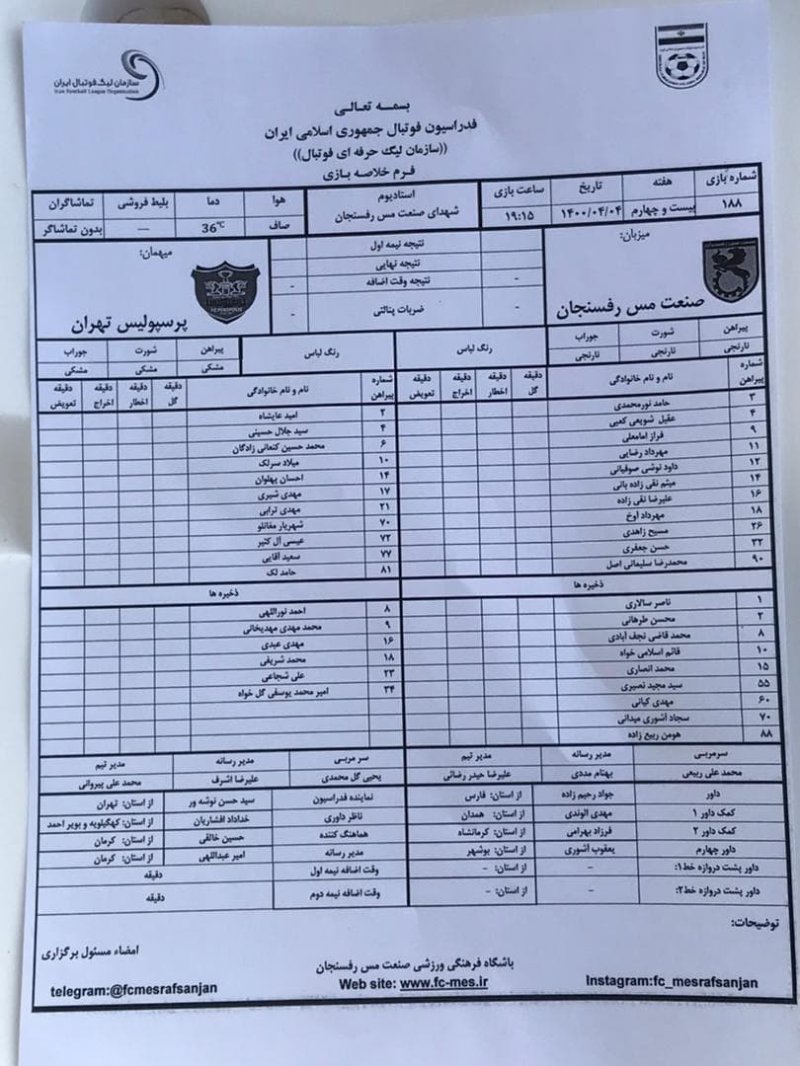 سازمان لیگ فوتبال ایران
Iran Football League Organization
بسمه تعالی
فدراسیون فوتبال جمهوری اسلامی ایران
((سازمان لیگ حرفه ای فوتبال))
فرم خلاصه بازی
شماره بازی هفته تاریخ ساعت بازی استادیوم هوا دما بلیط فروشی تماشاگران
۱۸۸ بیست و چهارم ۱۴۰۰/۰۴/۰۴ ۱۹:۱۵ شهدای صنعت مس رفسنجان صاف 36℃ --- بدون تماشاگر
میزبان:
صنعت مس رفسنجان
نتیجه نیمه اول
نتیجه نهایی
- نتیجه وقت اضافه -
- ضربات پنالتی -
میهمان:
پرسپولیس تهران
پیراهن شورت جوراب رنگ لباس
نارنجی نارنجی نارنجی
رنگ لباس پیراهن شورت جوراب
مشکی مشکی مشکی
شماره پیراهن نام و نام خانوادگی دقیقه گل دقیقه اخطار دقیقه اخراج دقیقه تعویض
۳ حامد نورمحمدی
۴ عقیل شویعی کعبی
۹ فراز امامعلی
۱۱ مهرداد رضایی
۱۲ داود نوشی صوفیانی
۱۴ میثم تقی زاده بانی
۱۶ علیرضا نقی زاده
۱۸ مهرداد آوخ
۲۶ مسیح زاهدی
۳۲ حسن جعفری
۹۰ محمدرضا سلیمانی اصل
ذخیره ها
۱ ناصر سالاری
۲ محسن طرهانی
۸ محمد قاضی نجف آبادی
۱۰ قائم اسلامی خواه
۱۵ محمد انصاری
۵۵ سید مجید نصیری
۶۰ مهدی کیانی
۷۰ سجاد آشوری میدانی
۸۸ هومن ربیع زاده
سرمربی مدیر رسانه مدیر تیم
محمد علی ربیعی بهنام مددی علیرضا حیدر رضائی
شماره پیراهن نام و نام خانوادگی دقیقه گل دقیقه اخطار دقیقه اخراج دقیقه تعویض
۲ امید عالیشاه
۴ سید جلال حسینی
۶ محمد حسین کنعانی زادگان
۱۰ میلاد سرلک
۱۴ احسان پهلوان
۱۷ مهدی شیری
۲۱ مهدی ترابی
۷۰ شهریار مغانلو
۷۲ عیسی آل کثیر
۷۷ سعید آقایی
۸۱ حامد لک
ذخیره ها
۸ احمد نوراللهی
۹ محمد مهدی مهدیخانی
۱۶ مهدی عبدی
۱۸ محمد شریفی
۲۳ علی شجاعی
۳۴ امیر محمد یوسفی گل خواه
سر مربی مدیر رسانه مدیر تیم
یحیی گل محمدی علیرضا اشرف محمد علی پیروانی
داور جواد رحیم زاده از استان: فارس
کمک داور ۱ مهدی الوندی از استان: همدان
کمک داور ۲ فرزاد بهرامی از استان: کرمانشاه
داور چهارم یعقوب آشوری از استان: بوشهر
داور پشت دروازه خط۱: - از استان: -
داور پشت دروازه خط۲: - از استان: -
نماینده فدراسیون سید حسن نوشه ور از استان: تهران
ناظر داوری خداداد افشاریان از استان: کهگیلویه و بویر احمد
هماهنگ کننده حسین خالقی از استان: کرمان
مدیر رسانه امیر عبداللهی از استان: کرمان
وقت اضافه نیمه اول دقیقه
وقت اضافه نیمه دوم دقیقه
توضیحات:
امضاء مسئول برگزاری
باشگاه فرهنگی ورزشی صنعت مس رفسنجان
telegram:@fcmesrafsanjan Web site: www.fc-mes.ir Instagram:fc_mesrafsanjan